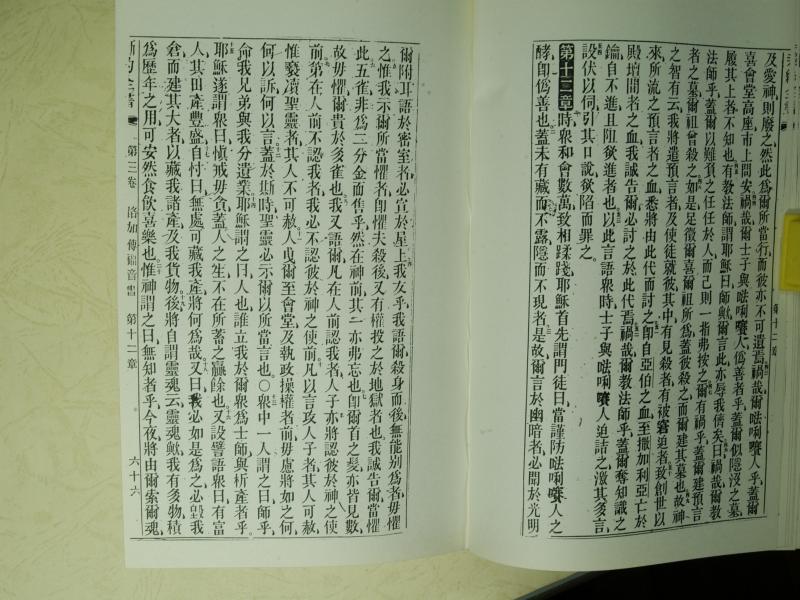 及愛神則廢之然此爲爾所當行而彼亦不可遺焉禍哉爾㗲唎㘔人乎蓋爾
喜會堂高座市上問安禍哉爾士子與㗲唎㘔人僞善者乎蓋爾似隱沒之墓
履其上者不知也有教法師謂耶穌曰師歟爾言此亦辱我儕矣曰禍哉爾教
法師乎蓋爾以難負之任任於人而己則一指弗按之爾有禍乎蓋爾建預言
者之墓爾祖曾殺之如是足徵爾喜爾祖所爲蓋彼殺之而爾建其墓也故神
之智有云我將遣預言者及使徒就彼其中有見殺者有被窘迫者致創世以
來所流之預言者之血悉將由此代而討之卽自亞伯之血至撒加利亞亡於
殿壇間者之血我誠告爾必討之於此代焉禍哉爾教法師乎蓋爾奪知識之
鑰自不進且阻欲進者也以此言語衆時士子與㗲唎㘔人迫詰之激其多言
設伏以伺引其口說欲陷而罪之
第十二章 時衆和會數萬致相蹂踐耶穌首先謂門徒曰當謹防㗲唎㘔人之
酵卽僞善也蓋未有藏而不露隱而不現者是故爾言於幽暗者必聞於光明
爾附耳語於密室者必宣於屋上我友乎我語爾殺身而後無能別爲者毋懼
之惟我示爾所當懼者卽懼夫殺後又有權投之於地獄者也我誠告爾當懼
此五雀非爲二分金而售乎然在神前其一亦弗忘也卽爾首之髮亦皆見數
故毋懼爾貴於多雀也我又語爾凡在人前認我者人子亦將認彼於神之使
前第在人前不認我者我必不認彼於神之使前凡以言攻人子者其人可赦
惟褻瀆聖靈者其人不可赦人曳爾至會堂及執政操權者前毋慮將如之何
何以訴何以言蓋於斯時聖靈必示爾以所當言也〇衆中一人謂之曰師乎
命我兄弟與我分遺業耶穌謂之曰人也誰立我於爾衆爲士師與析產者乎
耶穌遂謂衆曰愼戒毋貪蓋人之生不在所蓄之贏餘也又設譬語衆曰有富
人其田產豐盛自忖曰無處可藏我產將何爲哉又曰我必如是爲之必毀我
倉而建其大者以藏我諸產及我貨物後將自謂靈魂云靈魂歟我有多物積
爲歷年之用可安然食飲喜樂也惟神謂之曰無知者乎今夜將由爾索爾魂
新約全書 第三卷 路加傳福音書 第十二章 六十六